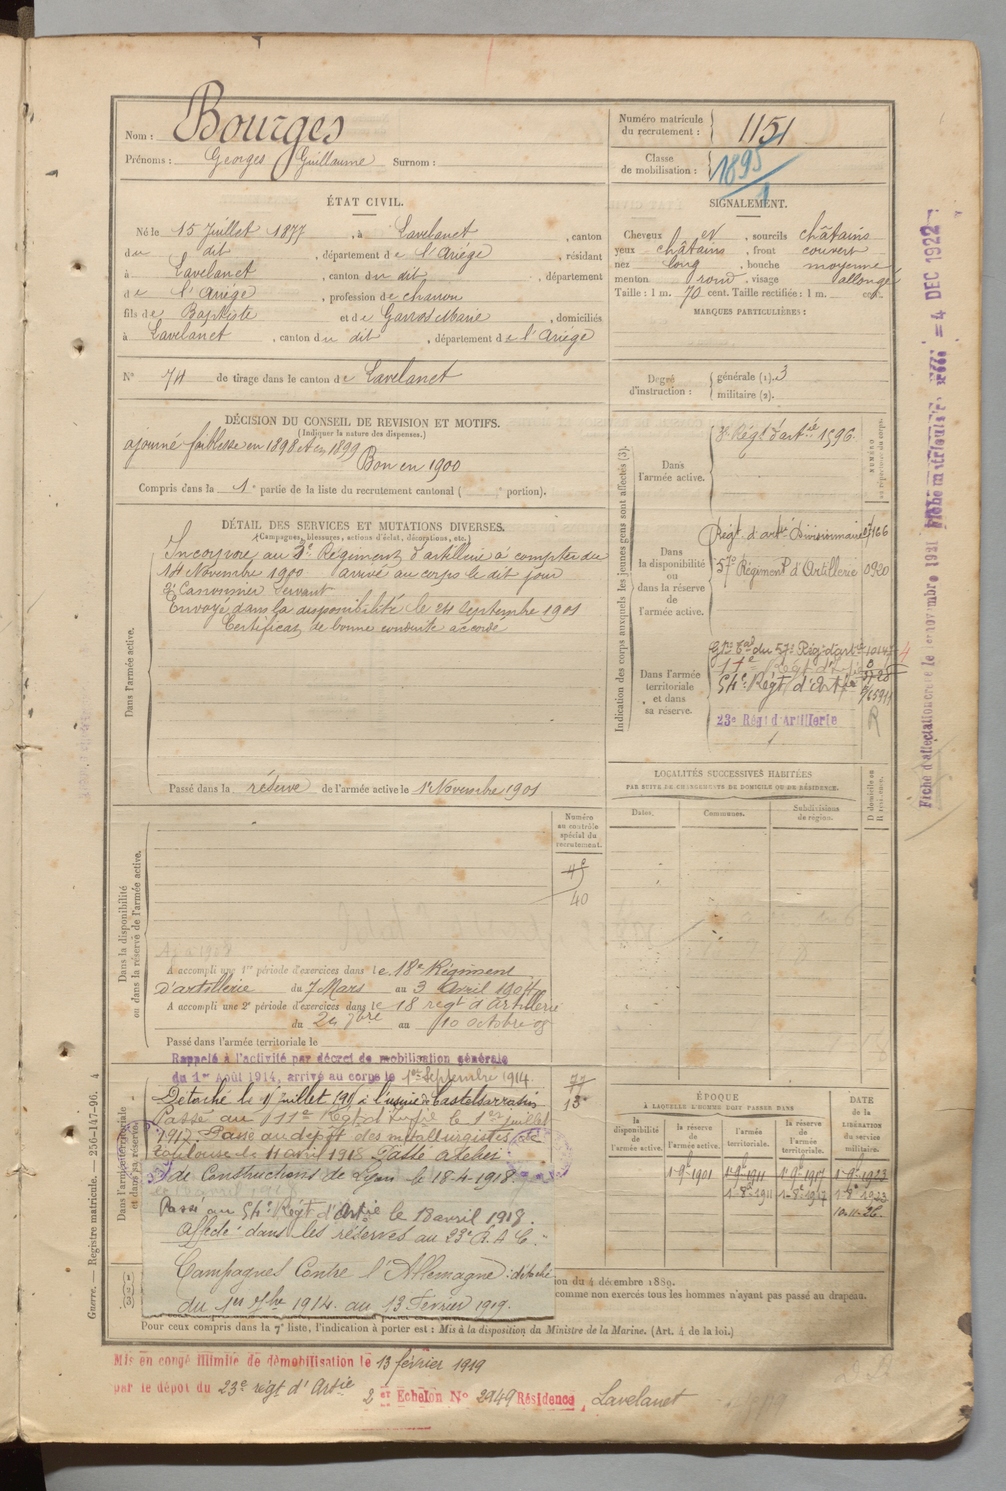 Nom : Bourges
Prénoms : Georges Guillaume Surnom :
Numéro matricule du recrutement : 1151
Classe de mobilisation : 1895
ÉTAT CIVIL.
Né le 15 Juillet 1877, à Lavelanet, canton
du dit, département de l'Ariége, résidant
à Lavelanet, canton du dit, département
de l'Ariége, profession de charron
fils de Baptiste et de Garros Marie, domiciliés
à Lavelanet, canton du dit, département de l'Ariége
N° 74 de tirage dans le canton de Lavelanet
SIGNALEMENT.
Cheveux et, sourcils châtains
yeux châtains, front couvert
nez long, bouche moyenne
menton rond, visage allongé
Taille : 1 m. 70 cent. Taille rectifiée : 1 m. cent.
MARQUES PARTICULIÈRES :
Degré d'instruction : générale (1). 3
militaire (2).
DÉCISION DU CONSEIL DE REVISION ET MOTIFS.
(Indiquer la nature des dispenses.)
ajourné faiblesse en 1898 et en 1899
Bon en 1900
Compris dans la 1e partie de la liste du recrutement cantonal ( e portion).
DÉTAIL DES SERVICES ET MUTATIONS DIVERSES.
(Campagnes, blessures, actions d'éclat, décorations, etc.)
Dans l'armée active.
Incorporé au 3e Régiment d'artillerie à compter du
14 Novembre 1900 arrivé au corps le dit jour
2e Canonnier Servant
Envoyé dans la disponibilité le 24 Septembre 1901
Certificat de bonne conduite accordé
Passé dans la réserve de l'armée active le 1er Novembre 1901
Indication des corps auxquels les jeunes gens sont affectés (3).
NUMÉRO au répertoire du corps.
Dans l'armée active.
3e Régt d'artie 1596
Dans la disponibilité ou dans la réserve de l'armée active.
Régt d'artie Divisionnaire
57e Régiment d'Artillerie 0920
Dans l'armée territoriale et dans sa réserve.
Gpe Tal du 57e Rég. d'artie
54e Régt d'Artie
23e Régt d'Artillerie
R
LOCALITÉS SUCCESSIVES HABITÉES
PAR SUITE DE CHANGEMENTS DE DOMICILE OU DE RÉSIDENCE.
Dates. Communes. Subdivisions de région. D domicile ou R résidence.
Dans la disponibilité ou dans la réserve de l'armée active.
Numéro au contrôle spécial du recrutement.
40
A accompli une 1re période d'exercices dans le 18e Régiment
d'artillerie du 7 Mars au 3 Avril 1904
A accompli une 2e période d'exercices dans le 18 régt d'Artillerie
du 24 7bre au 10 octobre 08
Passé dans l'armée territoriale le
Rappelé à l'activité par décret de mobilisation générale
du 1er Août 1914, arrivé au corps le 1er Septembre 1914
77
13
Dans l'armée territoriale et dans sa réserve.
Détaché le 1 juillet 1915 à l'usine de Castelsarrasin
Passé au 111e Régt d'Infie le 1er juillet
1917. Passé au dépôt des métallurgistes de
Toulouse le 11 avril 1918 Passé atelier
de Constructions de Lyon le 18-4-1918.
Passé au 54e Régt d'Artie le 18 avril 1918.
Affecté dans les réserves au 23e R.A.C.
Campagnes Contre l'Allemagne : dépôt
du 1er 7bre 1914 au 13 Février 1919.
ÉPOQUE
À LAQUELLE L'HOMME DOIT PASSER DANS
la disponibilité de l'armée active. la réserve de l'armée active. l'armée territoriale. la réserve de l'armée territoriale.
DATE de la LIBÉRATION du service militaire.
10-11-26.
ion du 4 décembre 1889.
comme non exercés tous les hommes n'ayant pas passé au drapeau.
Pour ceux compris dans la 7e liste, l'indication à porter est : Mis à la disposition du Ministre de la Marine. (Art. 4 de la loi.)
Mis en congé illimité de démobilisation le 13 février 1919
par le dépôt du 23e régt d'Artie 2 er Echelon N° 2949 Résidence Lavelanet
Guerre. — Registre matricule. — 256-147-96. 4
= 4 DEC 1922